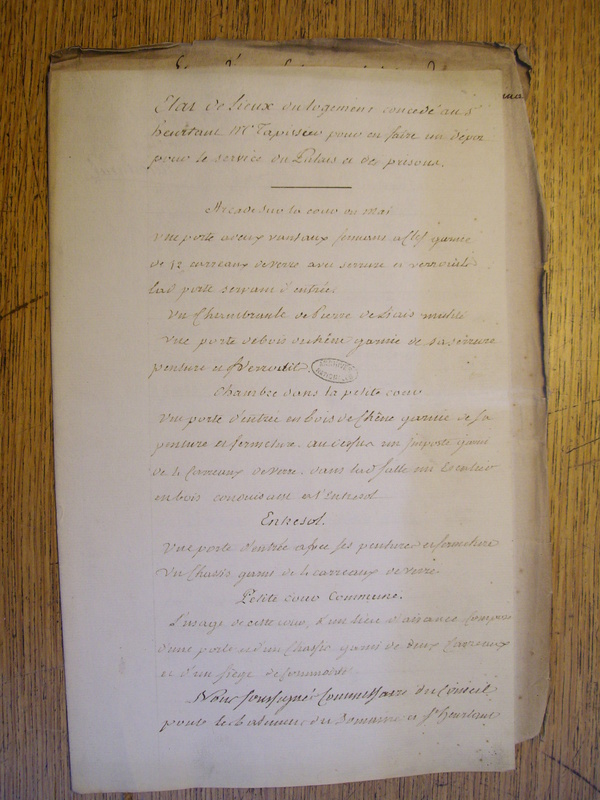 Etat de Lieux du logement concedé au S.
heurtaut Md Tapissier pour en faire un depot
pour le service du Palais et des prisons.
Arcade sur la cour du mai
une porte a deux vantaux fermant a Clef garnie
de 12 carreaux de verre avec serrure et verrouils
lad porte servant d'entrée.
un Chambranle de Pierre de Liais mutilé
une porte de bois de chêne garnie de sa serrure
penture et Verrouil.
Chambre dans la petite cour
une porte d'entrée en bois de Chêne garnie de sa
penture et fermeture au dessus un imposte garni
de 4 Carreaux de verre. dans lad salle un Escalier
en bois conduisant a l'Entresol
Entresol.
une porte d'entrée avec ses pentures et fermeture
un Chassis garni de 4 carreaux de verre
Petite cour Commune.
L'usage de cette cour, d'un lieu d'aisance Composé
d'une porte et d'un Chassis garni de deux Carreaux
et d'un siege de Commodité
Nous soussigné Commissaire du Conseil
pour les Batimens du Domaine et Sr heurtaut